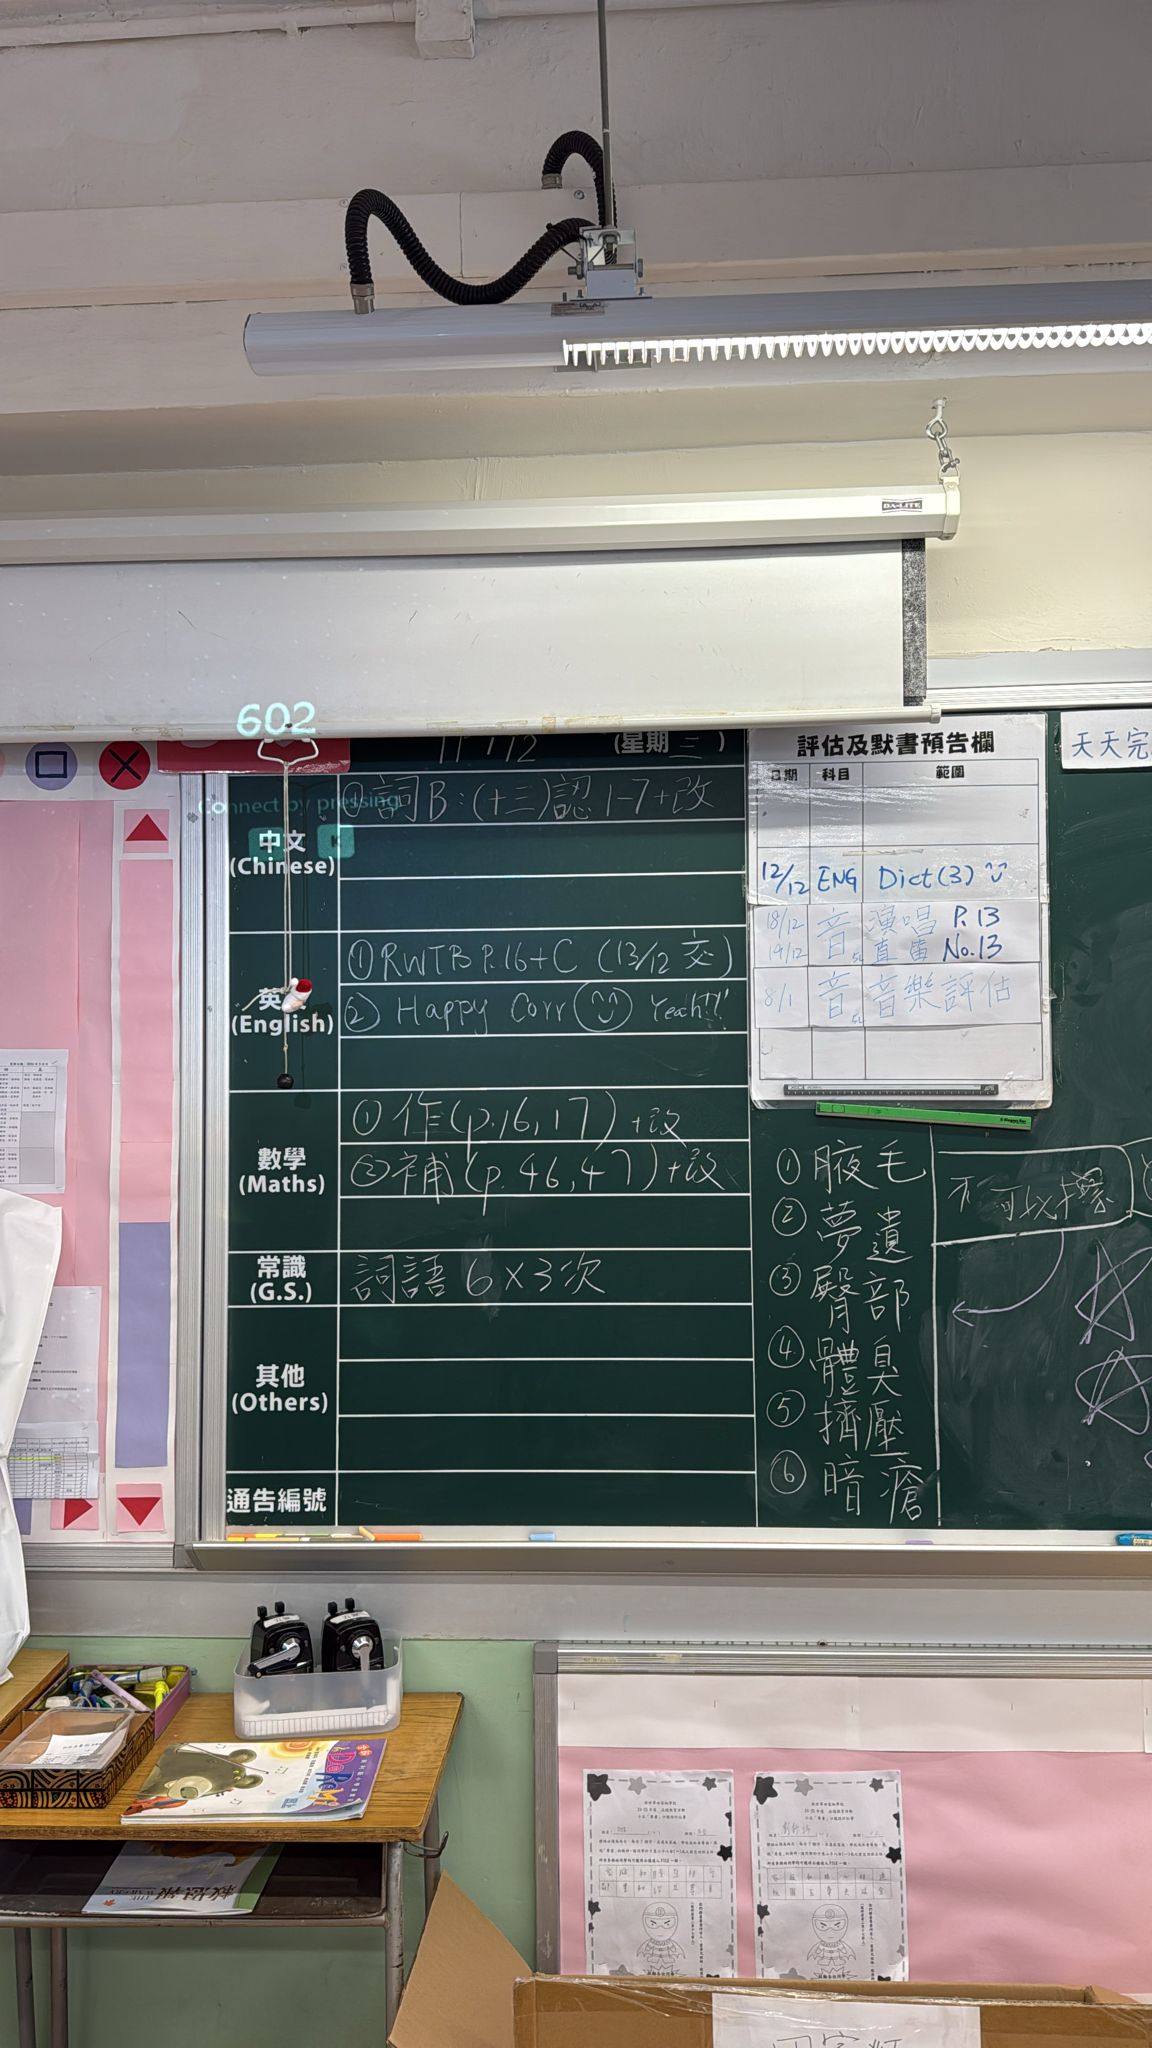 DA-LITE
602
Connect by pressing
K
(星期三)
①詞B:(十三)認1-7+改
中文
(Chinese)
①RWTB P.16+C (13/12 交)
② Happy Corr Yeah!!!
(English)
①作(p.16,17)+改
②補(p.46,47)+改
數學
(Maths)
常識
(G.S.)
詞語 6×3次
其他
(Others)
通告編號
評估及默書預告欄
日期 科目 範圍
12/12 ENG Dict(3)
18/12 音 演唱 P.13
19/12 音 直笛 No.13
8/1 音 音樂評估
天天完
①腋毛
②夢遺
③臀部
④體臭
⑤擠壓
⑥暗瘡
不可以擦
DoReMi